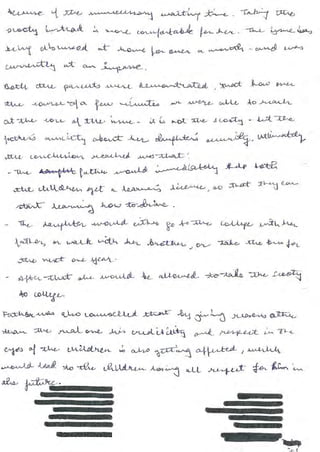 because of the unnecessary waiting time. Taking the
scooty instead is more comfortable for her. The issue was
being discussed at home for over a month - and was
currently at an impasse.
Both the parents were demonstrated, that how over
the course of a few minutes we were able to reach
at the core of the issue - it is not the scooty - but the
father's anxiety about her daughter's security. Ultimately
the conclusion reached was that:
- The father would immediately help both
the children get a learner's license, so that they can
start learning how to drive.
- The daughter would either go to the college with her
father, or walk with her brother, or take the bus for
the next one year.
- After that she would be allowed to take the scooty
to college.
Father was also counselled that by giving reasons other
than the real one his credibility and respect in the
eyes of the children is also getting affected, which
would lead to the children losing all respect for him in
the future.